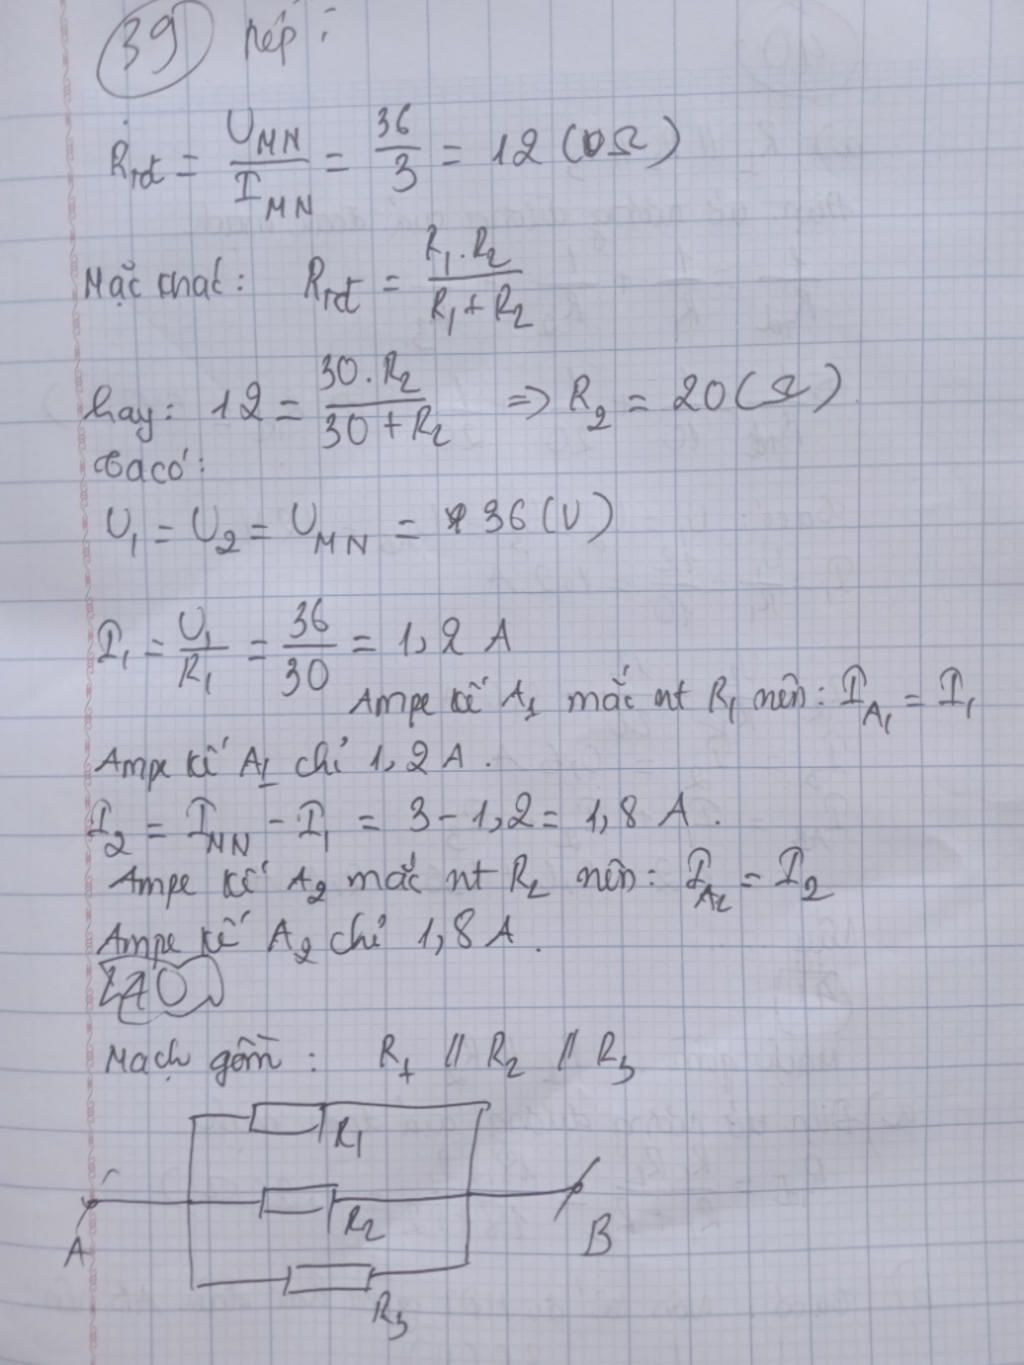 39 tiếp :
Rtđ = UMN / IMN = 36 / 3 = 12 (Ω)
Mặc khác : Rtđ = R1 . R2 / R1 + R2
hay : 12 = 30 . R2 / 30 + R2 => R2 = 20 (Ω)
Ta có :
U1 = U2 = UMN = 36 (V)
I1 = U1 / R1 = 36 / 30 = 1,2 A
Ampe kế A1 mắc nt R1 nên : IA1 = I1
Ampe kế A1 chỉ 1,2 A .
I2 = IMN - I1 = 3 - 1,2 = 1,8 A .
Ampe kế A2 mắc nt R2 nên : IA2 = I2
Ampe kế A2 chỉ 1,8 A .
40
Mạch gồm : R1 // R2 // R3
R1
A
R2
B
R3